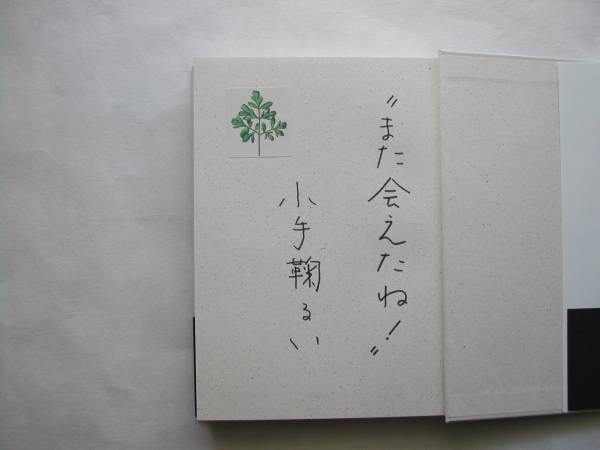 〝また会えたね！〟
小手鞠るい